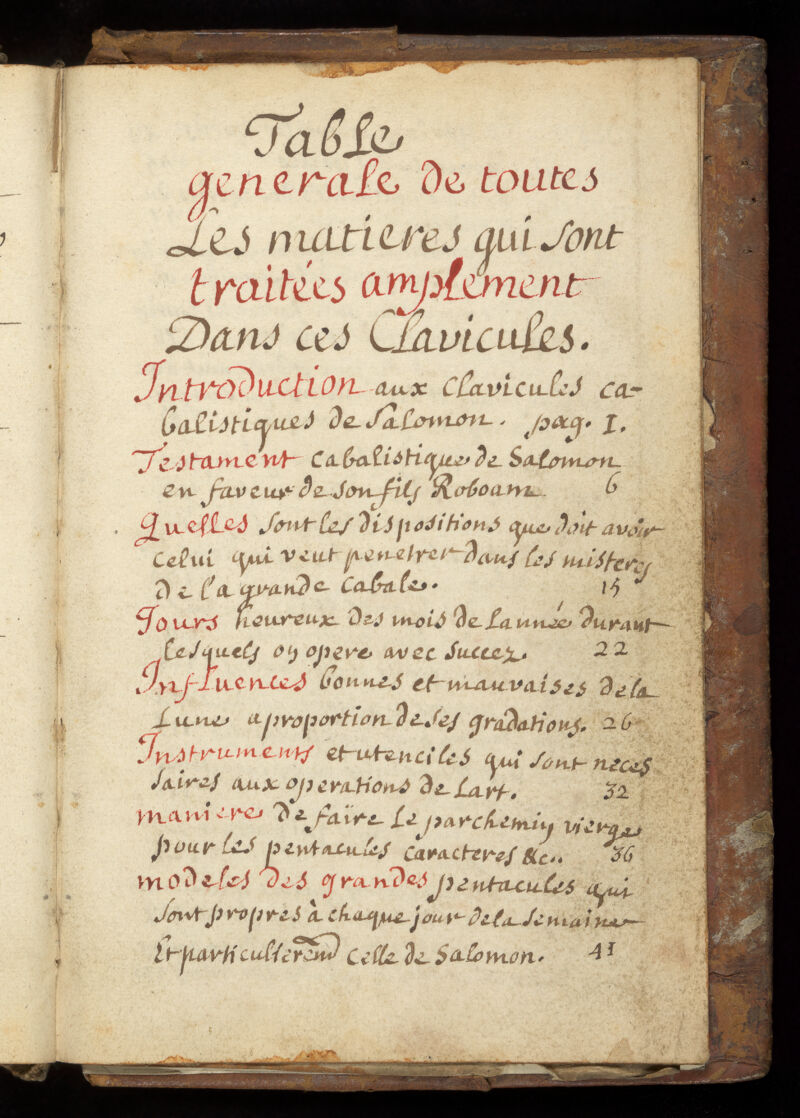 Table
generale de toutes
Les matieres qui sont
traitées amplement
Dans ces Clavicules.
Introduction aux Clavicules ca-
balistiques de Salomon. pag. 1.
Testament cabalistique de Salomon
en faveur de son fils Roboam 6
Quelles sont les dispositions que doit avoir
celui qui veut penetrer dans les misteres
De la grande Cabale. 15
Jours heureux Des mois de Lannée durant
lesquels on opere avec succez. 22
Influences bonnes et mauvaises dela
Lune a proportion de ses gradations. 26
Instruments et utenciles qui sont neces
saires aux operations de Lart. 32
maniere de faire Le parchemin vierge
pour les pentacules caracteres &c.. 36
modeles des grandes pentacules qui
sont propres à chaque jour dela semaine
Et particullierem̃ celle de Salomon. 41